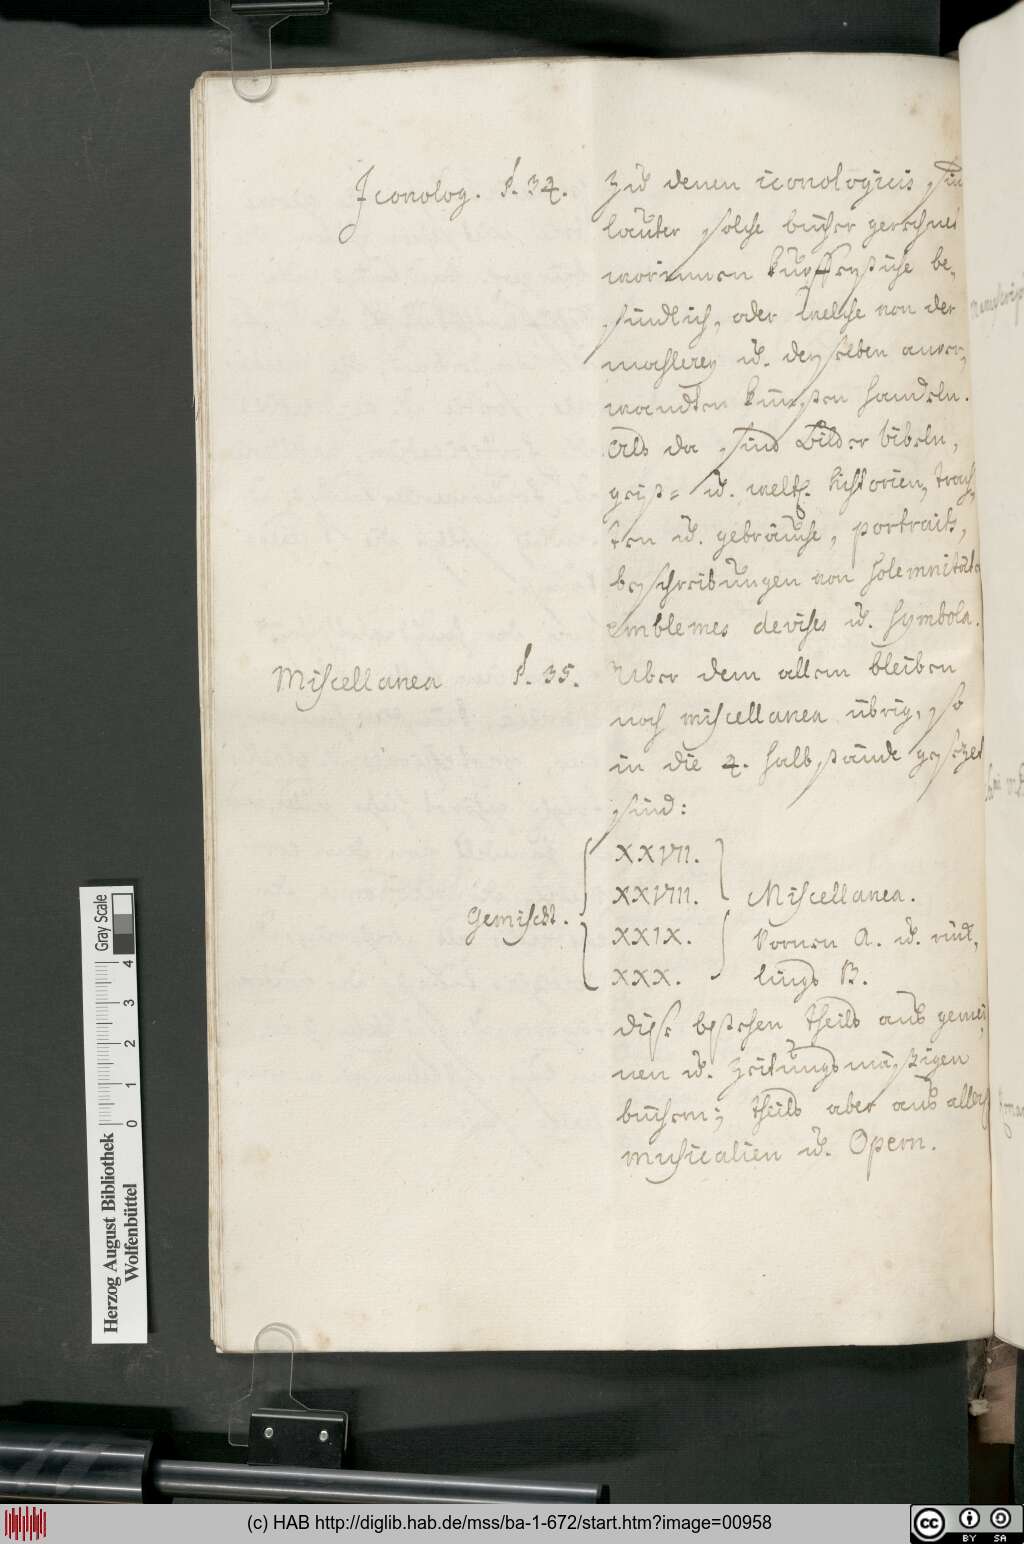 Iconolog. §. 34.
Zu denen iconologicis sin
lauter solche bücher gerechnet
worinnen kupfferstiche be-
findlich, oder welche von der
mahlerey u. derselben anver-
wandten künsten handeln.
Als da sind Bilder bibeln,
geist- u. weltl. Historien, trach-
ten u. gebräuche, portraits,
beschreibungen von Solemnitäte
emblemes devises u. Symbola.
Miscellanea §. 35.
Uber dem allem bleiben
noch miscellanea übrig, so
in die 4. halbstände gesezet
sind:
Gemischt.
XXVII.
XXVIII.
XXIX.
XXX.
Miscellanea.
vornen A. u. rück-
lings B.
diese bestehen theils aus gemei-
nen u. zeitungsmäßigen
büchern; theils aber aus allerh
musicalien u. Opern.
Herzog August Bibliothek
Wolfenbüttel
0 1 2 3 4
Gray Scale
(c) HAB http://diglib.hab.de/mss/ba-1-672/start.htm?image=00958
cc BY SA